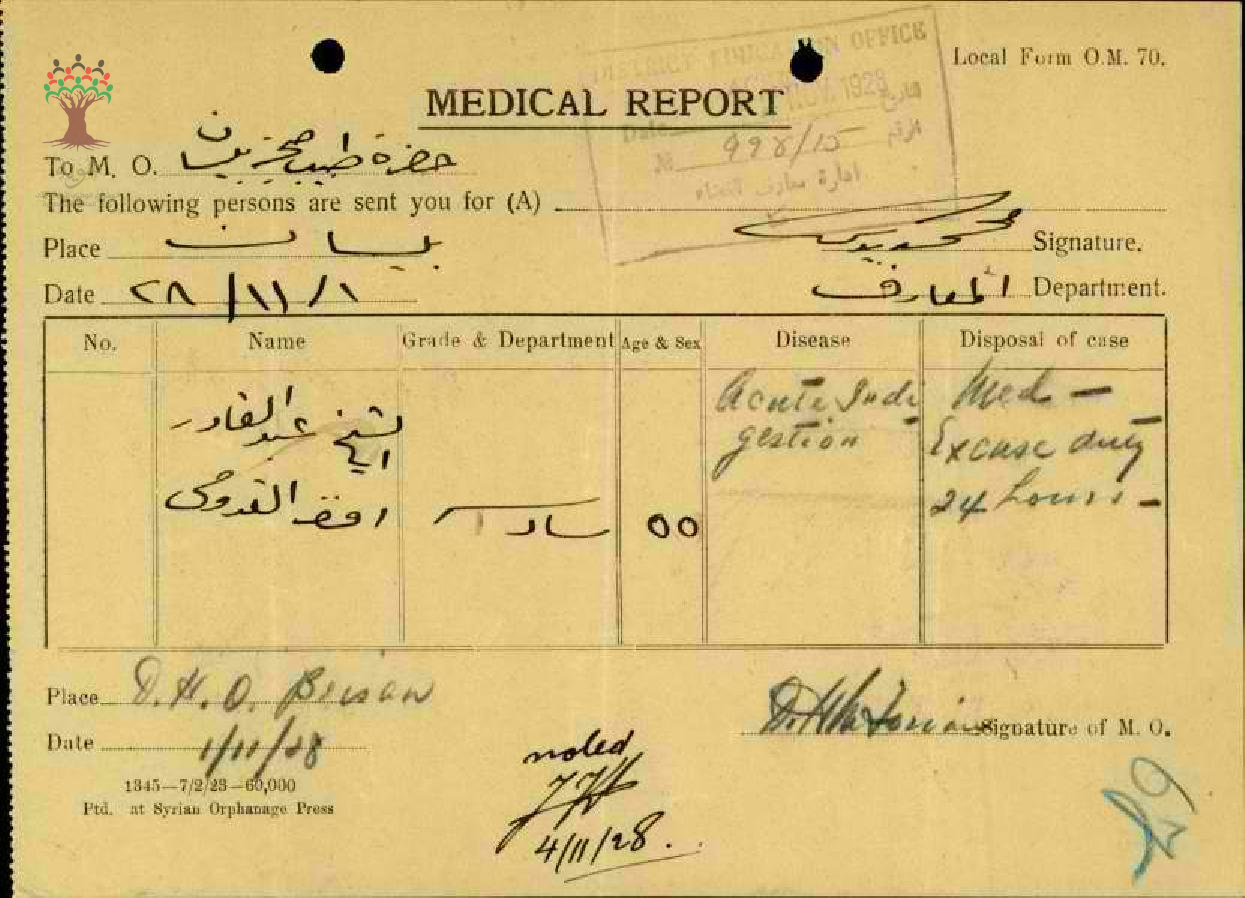 Local Form O.M. 70.
DISTRICT EDUCATION OFFICE
NOV. 1928 التاريخ
Date
№ 998/15 الرقم
ادارة معارف القضاء
MEDICAL REPORT
To M. O. حضرة طبيب صحة بيسان
The following persons are sent you for (A)
Place بيسان
Signature.
Date ٢٨/١١/١
المعارف Department.
No. Name Grade & Department Age & Sex Disease Disposal of case
الشيخ عبد القادر Acute Indi Med —
gestion Excuse duty
افندي القدومي ٥٥ 24 hours —
Place D.H.O. Beisan
Signature of M. O.
Date 1/11/28
noted
4/11/28.
1345—7/2/23—60,000
Ptd. at Syrian Orphanage Press